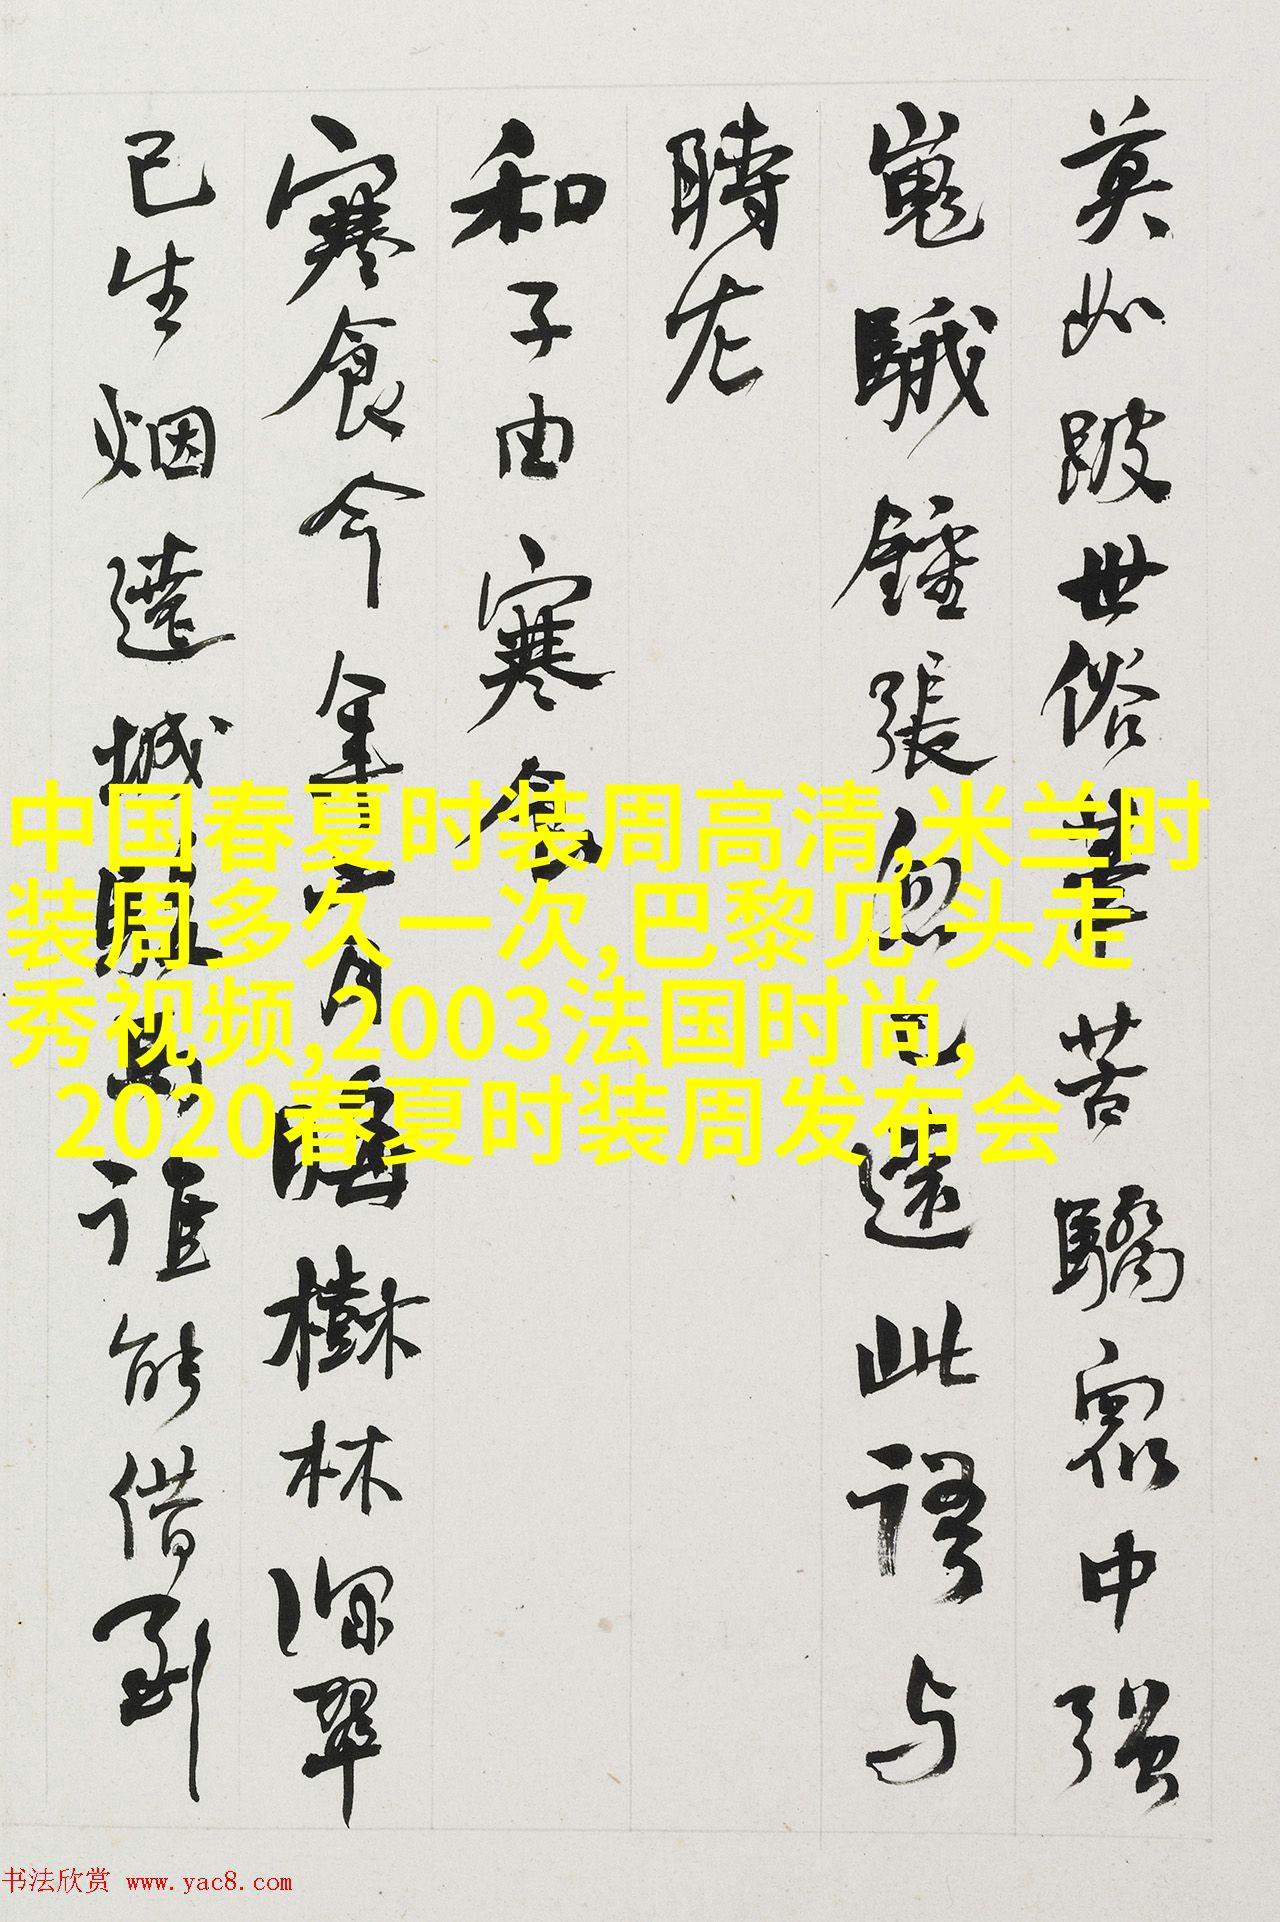 莫如跛世俗筆苦驕衆中強
嵬騀鍾張忽已遠此語与
時左
和子由寒食
寒食今年二月晦樹林深翠
已生烟遶城駿馬誰能借到
中国春夏时装周高清,米兰时
装周多久一次,巴黎见 头走
秀视频,2003法国时尚,
2020春夏时装周发布会
书法欣赏 www.yac8.com